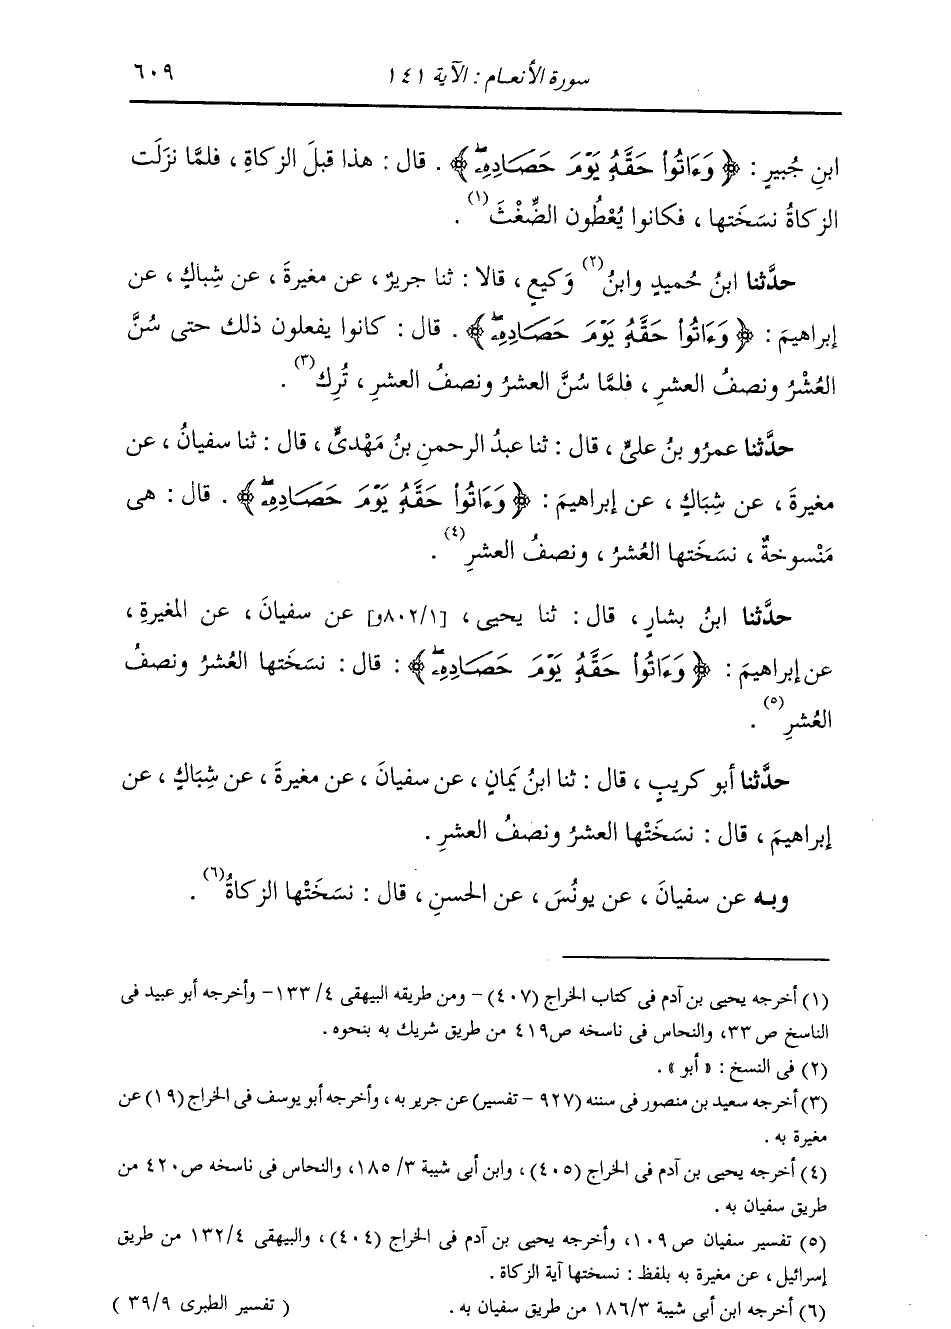 سورة الأنعام : الآية ١٤١ ٦٠٩
ابنِ جُبيرٍ : ﴿ وَءَاتُواْ حَقَّهُۥ يَوْمَ حَصَادِهِۦۖ ﴾ . قال : هذا قبلَ الزكاةِ ، فلمَّا نزَلَت
الزكاةُ نسَخَتها ، فكانوا يُعْطُون الضِّغْثَ(١) .
حدَّثنا ابنُ حُميدٍ وابنُ(٢) وَكيعٍ ، قالا : ثنا جريرٌ ، عن مغيرةَ ، عن شِباكٍ ، عن
إبراهيمَ : ﴿ وَءَاتُواْ حَقَّهُۥ يَوْمَ حَصَادِهِۦۖ ﴾ . قال : كانوا يفعلون ذلك حتى سُنَّ
العُشْرُ ونصفُ العشرِ ، فلمَّا سُنَّ العشرُ ونصفُ العشرِ ، تُرِك(٣) .
حدَّثنا عمرُو بنُ علىٍّ ، قال : ثنا عبدُ الرحمنِ بنُ مَهْدىٍّ ، قال : ثنا سفيانُ ، عن
مغيرةَ ، عن شِبَاكٍ ، عن إبراهيمَ : ﴿ وَءَاتُواْ حَقَّهُۥ يَوْمَ حَصَادِهِۦۖ ﴾ . قال : هى
مَنْسوخةٌ ، نسَخَتها العُشرُ ، ونصفُ العشرِ(٤) .
حدَّثنا ابنُ بشارٍ ، قال : ثنا يحيى ، [٨٠٢/١و] عن سفيانَ ، عن المغيرةِ ،
عن إبراهيمَ : ﴿ وَءَاتُواْ حَقَّهُۥ يَوْمَ حَصَادِهِۦۖ ﴾ : قال : نسَخَتها العُشرُ ونصفُ
العُشرِ(٥) .
حدَّثنا أبو كريبٍ ، قال : ثنا ابنُ يَمانٍ ، عن سفيانَ ، عن مغيرةَ ، عن شِبَاكٍ ، عن
إبراهيمَ ، قال : نسَخَتْها العشرُ ونصفُ العشرِ .
وبه عن سفيانَ ، عن يونُسَ ، عن الحسنِ ، قال : نسَخَتْها الزكاةُ(٦) .
(١) أخرجه يحيى بن آدم فى كتاب الخراج (٤٠٧) – ومن طريقه البيهقى ٤/ ١٣٣ – وأخرجه أبو عبيد فى
الناسخ ص ٣٣، والنحاس فى ناسخه ص٤١٩ من طريق شريك به بنحوه .
(٢) فى النسخ : « أبو » .
(٣) أخرجه سعيد بن منصور فى سننه (٩٢٧ – تفسير) عن جرير به ، وأخرجه أبو يوسف فى الخراج (١٩) عن
مغيرة به .
(٤) أخرجه يحيى بن آدم فى الخراج (٤٠٥) ، وابن أبى شيبة ٣/ ١٨٥، والنحاس فى ناسخه ص٤٢٠ من
طريق سفيان به .
(٥) تفسير سفيان ص ١٠٩، وأخرجه يحيى بن آدم فى الخراج (٤٠٤) ، والبيهقى ١٣٢/٤ من طريق
إسرائيل ، عن مغيرة به بلفظ : نسختها آية الزكاة .
(٦) أخرجه ابن أبى شيبة ١٨٦/٣ من طريق سفيان به . ( تفسير الطبرى ٣٩/٩ )